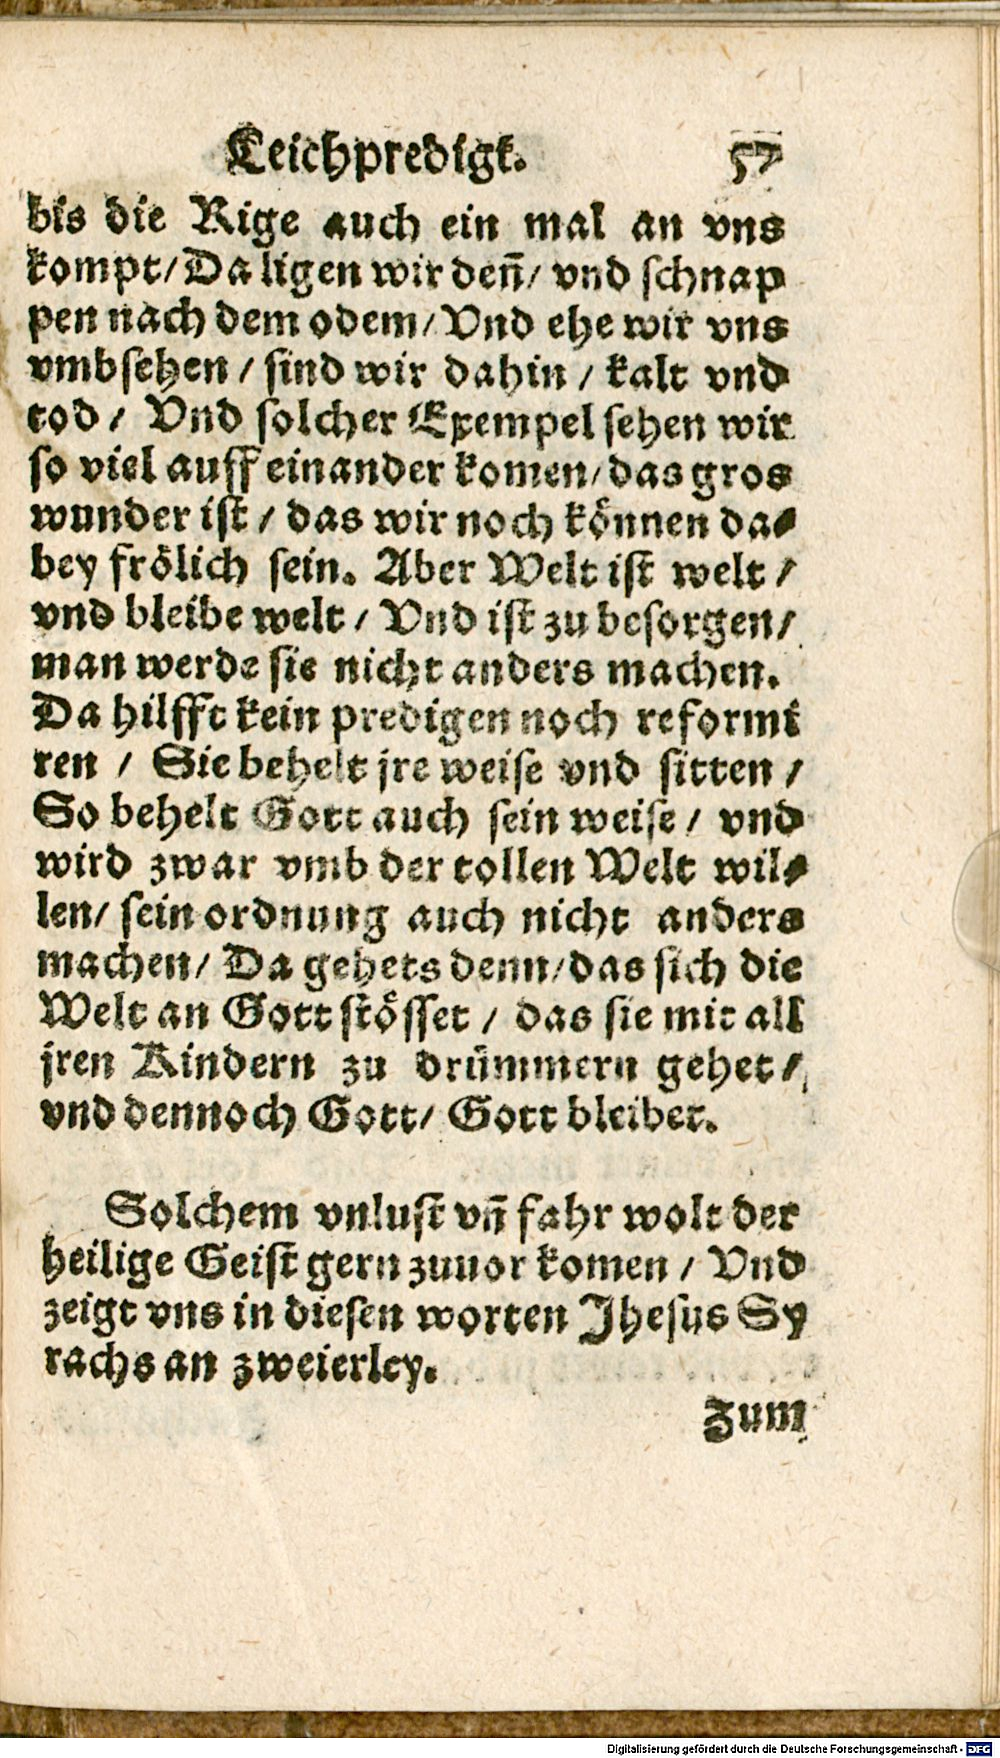 Leichpredigt. 57
bis die Rige auch ein mal an vns
kompt/ Da ligen wir deñ/ vnd schnap
pen nach dem odem/ Vnd ehe wir vns
vmbsehen / sind wir dahin / kalt vnd
tod / Vnd solcher Exempel sehen wir
so viel auff einander komen/ das gros
wunder ist / das wir noch können da⸗
bey frölich sein. Aber Welt ist welt /
vnd bleibe welt / Vnd ist zu besorgen/
man werde sie nicht anders machen.
Da hilfft kein predigen noch reformi
ren / Sie behelt jre weise vnd sitten /
So behelt Gott auch sein weise / vnd
wird zwar vmb der tollen Welt wil⸗
len/ sein ordnung auch nicht anders
machen/ Da gehets denn/ das sich die
Welt an Gott stösset / das sie mit all
jren Kindern zu drümmern gehet /
vnd dennoch Gott/ Gott bleibet.
Solchem vnlust vñ fahr wolt der
heilige Geist gern zuuor komen / Vnd
zeigt vns in diesen worten Jhesus Sy
rachs an zweierley.
Zum
Digitalisierung gefördert durch die Deutsche Forschungsgemeinschaft - DFG